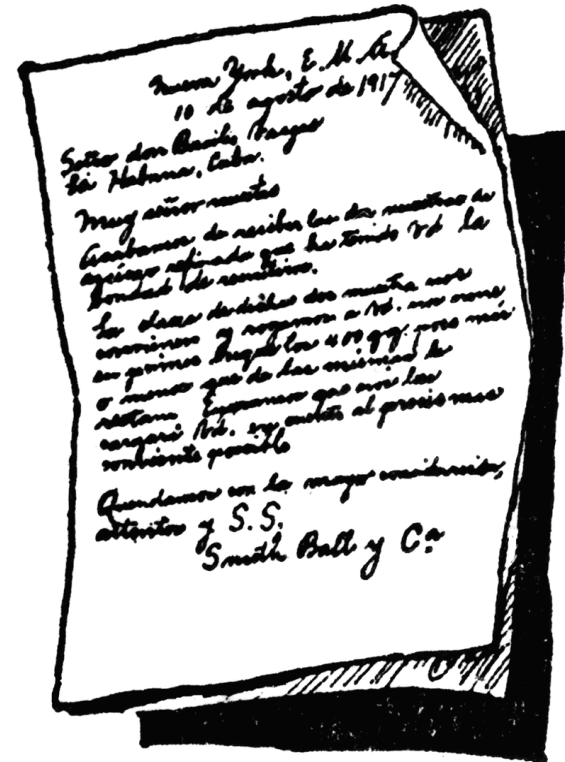 Nueva York, E. U. A.
10 de agosto de 1917
Señor don Basilio Vargas
La Habana, Cuba.
Muy señor nuestro
Acabamos de recibir las dos muestras de
azúcar refinado que ha tenido Vd la
bondad de remitirnos.
La clase de dichas dos muestra nos
conviene y rogamos a Vd. nos
en primer buque los 400 qq. poco más
o menos que de las mismas le
restan. Esperamos que nos los
cargará Vd. en cuenta al precio mas
conviente posible
Quedamos con la mayor consideración,
atentos y S. S.
Smith Ball y Cª